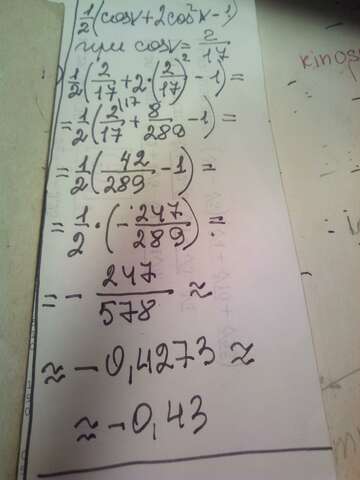 1/2(cosx+2cos²x-1)
при cosx=2/17
1/2(2/17+2·(2/17)²-1)=
=1/2(2/17+8/289-1)=
=1/2(42/289-1)=
=1/2·(-247/289)=
=-247/578≈
≈-0,4273≈
≈-0,43